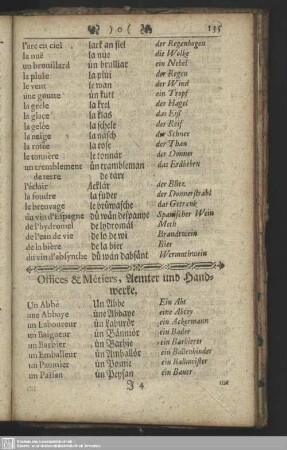 135
l'arc en ciel lark an siel der Regenbogen
la nuë la nüe die Wolke
un brouillard un brulliar ein Nebel
la pluïe la plui der Regen
le vent le wan der Wind
une goutte ün kutt ein Tropf
la grèle la krel der Hagel
la glace la klas das Eiß
la gelée la schele der Reif
la neige la näsch der Schnee
la rosée la rose der Thau
le tonnère le tonnär der Donner
un tremblement ün trambleman das Erdbeben
de terre de tärr
l'éclair lecklär der Blitz
la foudre la fuder der Donnerstrahl
le breuvage le bröwasche das Getrank
du vin d'Espagne dü wän despanje Spanischer Wein
de l'hydromel de lydromäl Meth
de l'eau de vie de lo de wi Brandtwein
de la bière de la bier Bier
du vin d'absynthe dü wän dabsänt Wermuthwein
Offices & Métiers, Aemter und Hand-
werke.
Un Abbé ün Abbe Ein Abt
une Abbaye üne Abbaye eine Abtey
un Laboureur un Laburör ein Ackermann
un Baigneur un Bännior ein Bader
un Barbier un Barbie ein Barbierer
un Emballeur un Amballör ein Ballenbinder
un Paumier un Pomie ein Ballmeister
un Païsan un Peysan ein Bauer
J 4 une